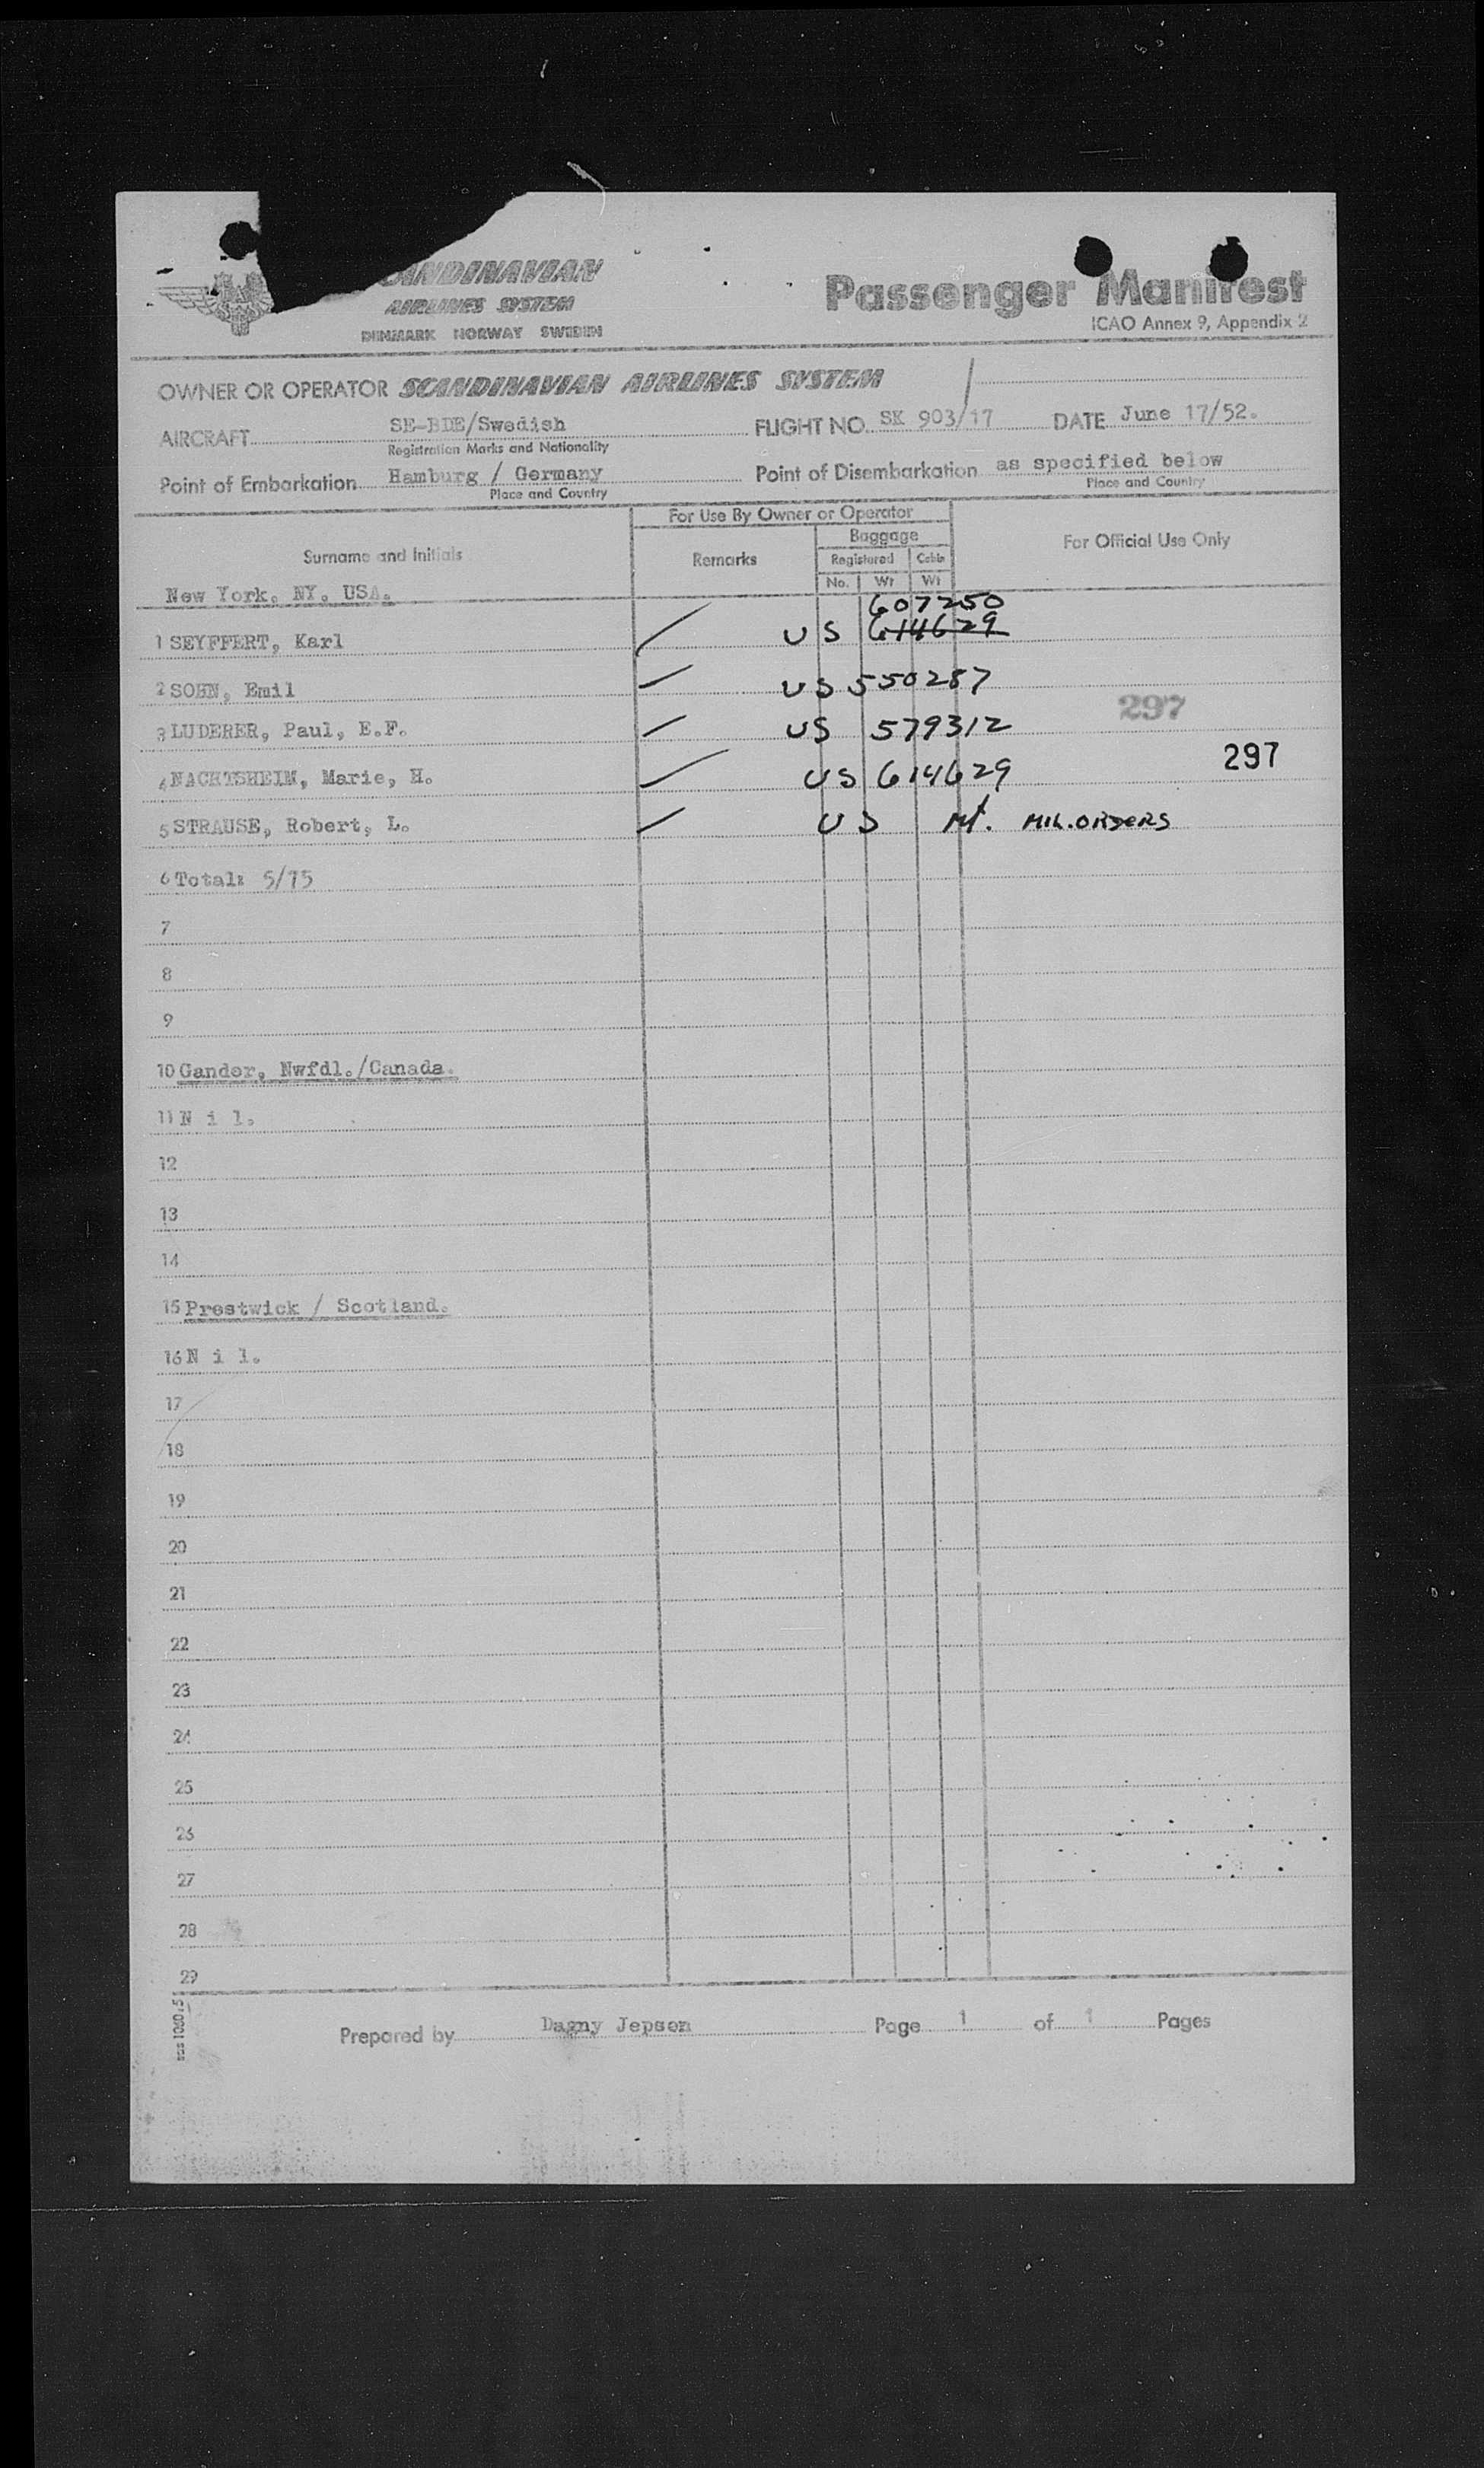 SCANDINAVIAN
AIRLINES SYSTEM
DENMARK NORWAY SWEDEN
Passenger Manifest
ICAO Annex 9, Appendix 2
OWNER OR OPERATOR SCANDINAVIAN AIRLINES SYSTEM
AIRCRAFT SE-BDE/Swedish FLIGHT NO. SK 903/17 DATE June 17/52.
Registration Marks and Nationality
Point of Embarkation Hamburg / Germany Point of Disembarkation as specified below
Place and Country Place and Country
For Use By Owner or Operator
Surname and Initials Remarks Baggage For Official Use Only
Registered Cabin
No. Wt Wt
New York, NY, USA.
607250
1 SEYFFERT, Karl US 614629
2 SOHN, Emil US 550287
3 LUDERER, Paul, E.F. US 579312 297
4 NACHTSHEIM, Marie, H. US 614629 297
5 STRAUSE, Robert, L. US MIL.ORDERS
6 Total: 5/75
7
8
9
10 Gander, Nwfdl./Canada.
11 N i l.
12
13
14
15 Prestwick / Scotland.
16 N i l.
17
18
19
20
21
22
23
24
25
26
27
28
29
Prepared by Dagny Jepsen Page 1 of 1 Pages